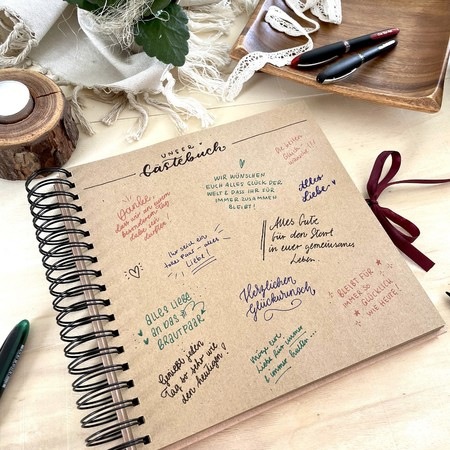 UNSER
Gästebuch
Danke,
dass wir an eurem
besonderen Tag
dabei sein
durften!
WIR WÜNSCHEN
EUCH ALLES GLÜCK DER
WELT & DASS IHR FÜR
IMMER ZUSAMMEN
BLEIBT!
Die besten
Glück
Alles
Liebe
Ihr seid ein
tolles Paar - alles
Liebe!
Alles Gute
für den Start
in euer gemeinsames
Leben.
ALLES LIEBE
AN DAS
BRAUTPAAR
Herzlichen
Glückwunsch
BLEIBT FÜR
IMMER SO
GLÜCKLICH
WIE HEUTE!
Genießt jeden
Tag so sehr wie
den heutigen!
Möge eure
Liebe für immer
& immer halten...